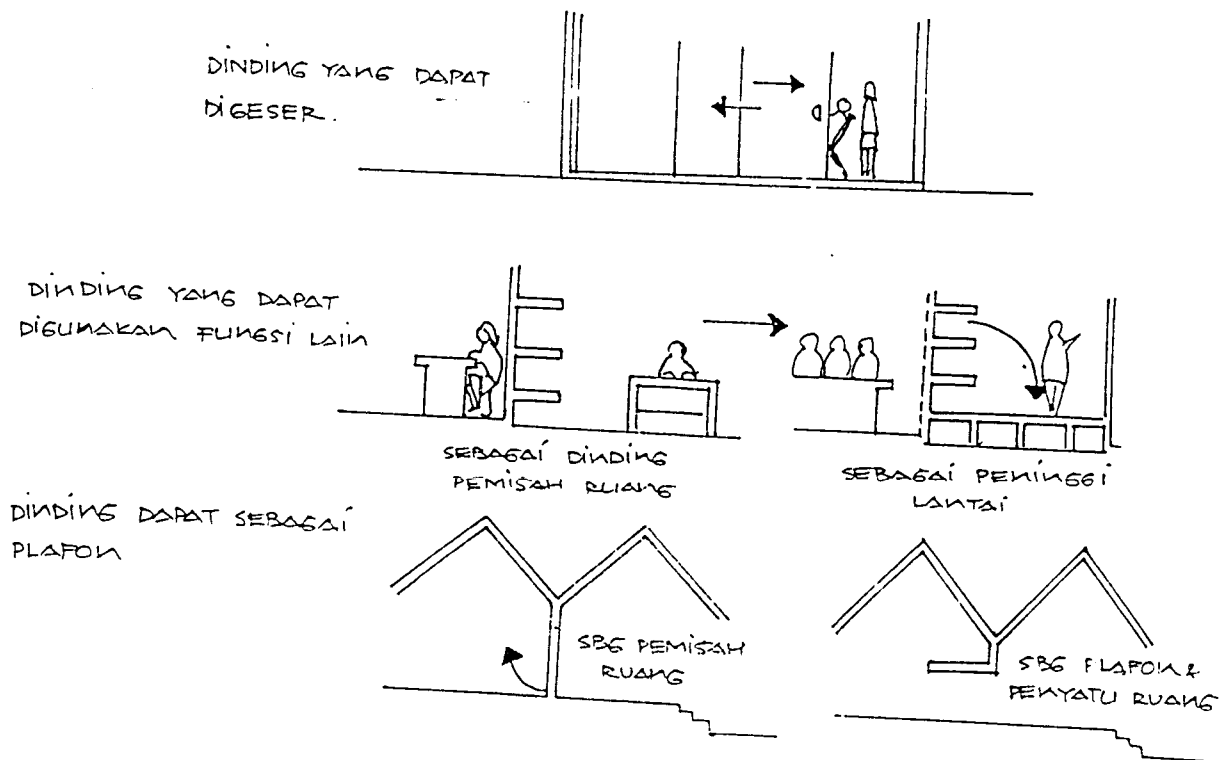 DINDING YANG DAPAT
DIGESER.
DINDING YANG DAPAT
DIGUNAKAN FUNGSI LAIN
SEBAGAI DINDING
PEMISAH RUANG
SEBAGAI PENINGGI
LANTAI
DINDING DAPAT SEBAGAI
PLAFON
SBG PEMISAH
RUANG
SBG PLAFON &
PENYATU RUANG